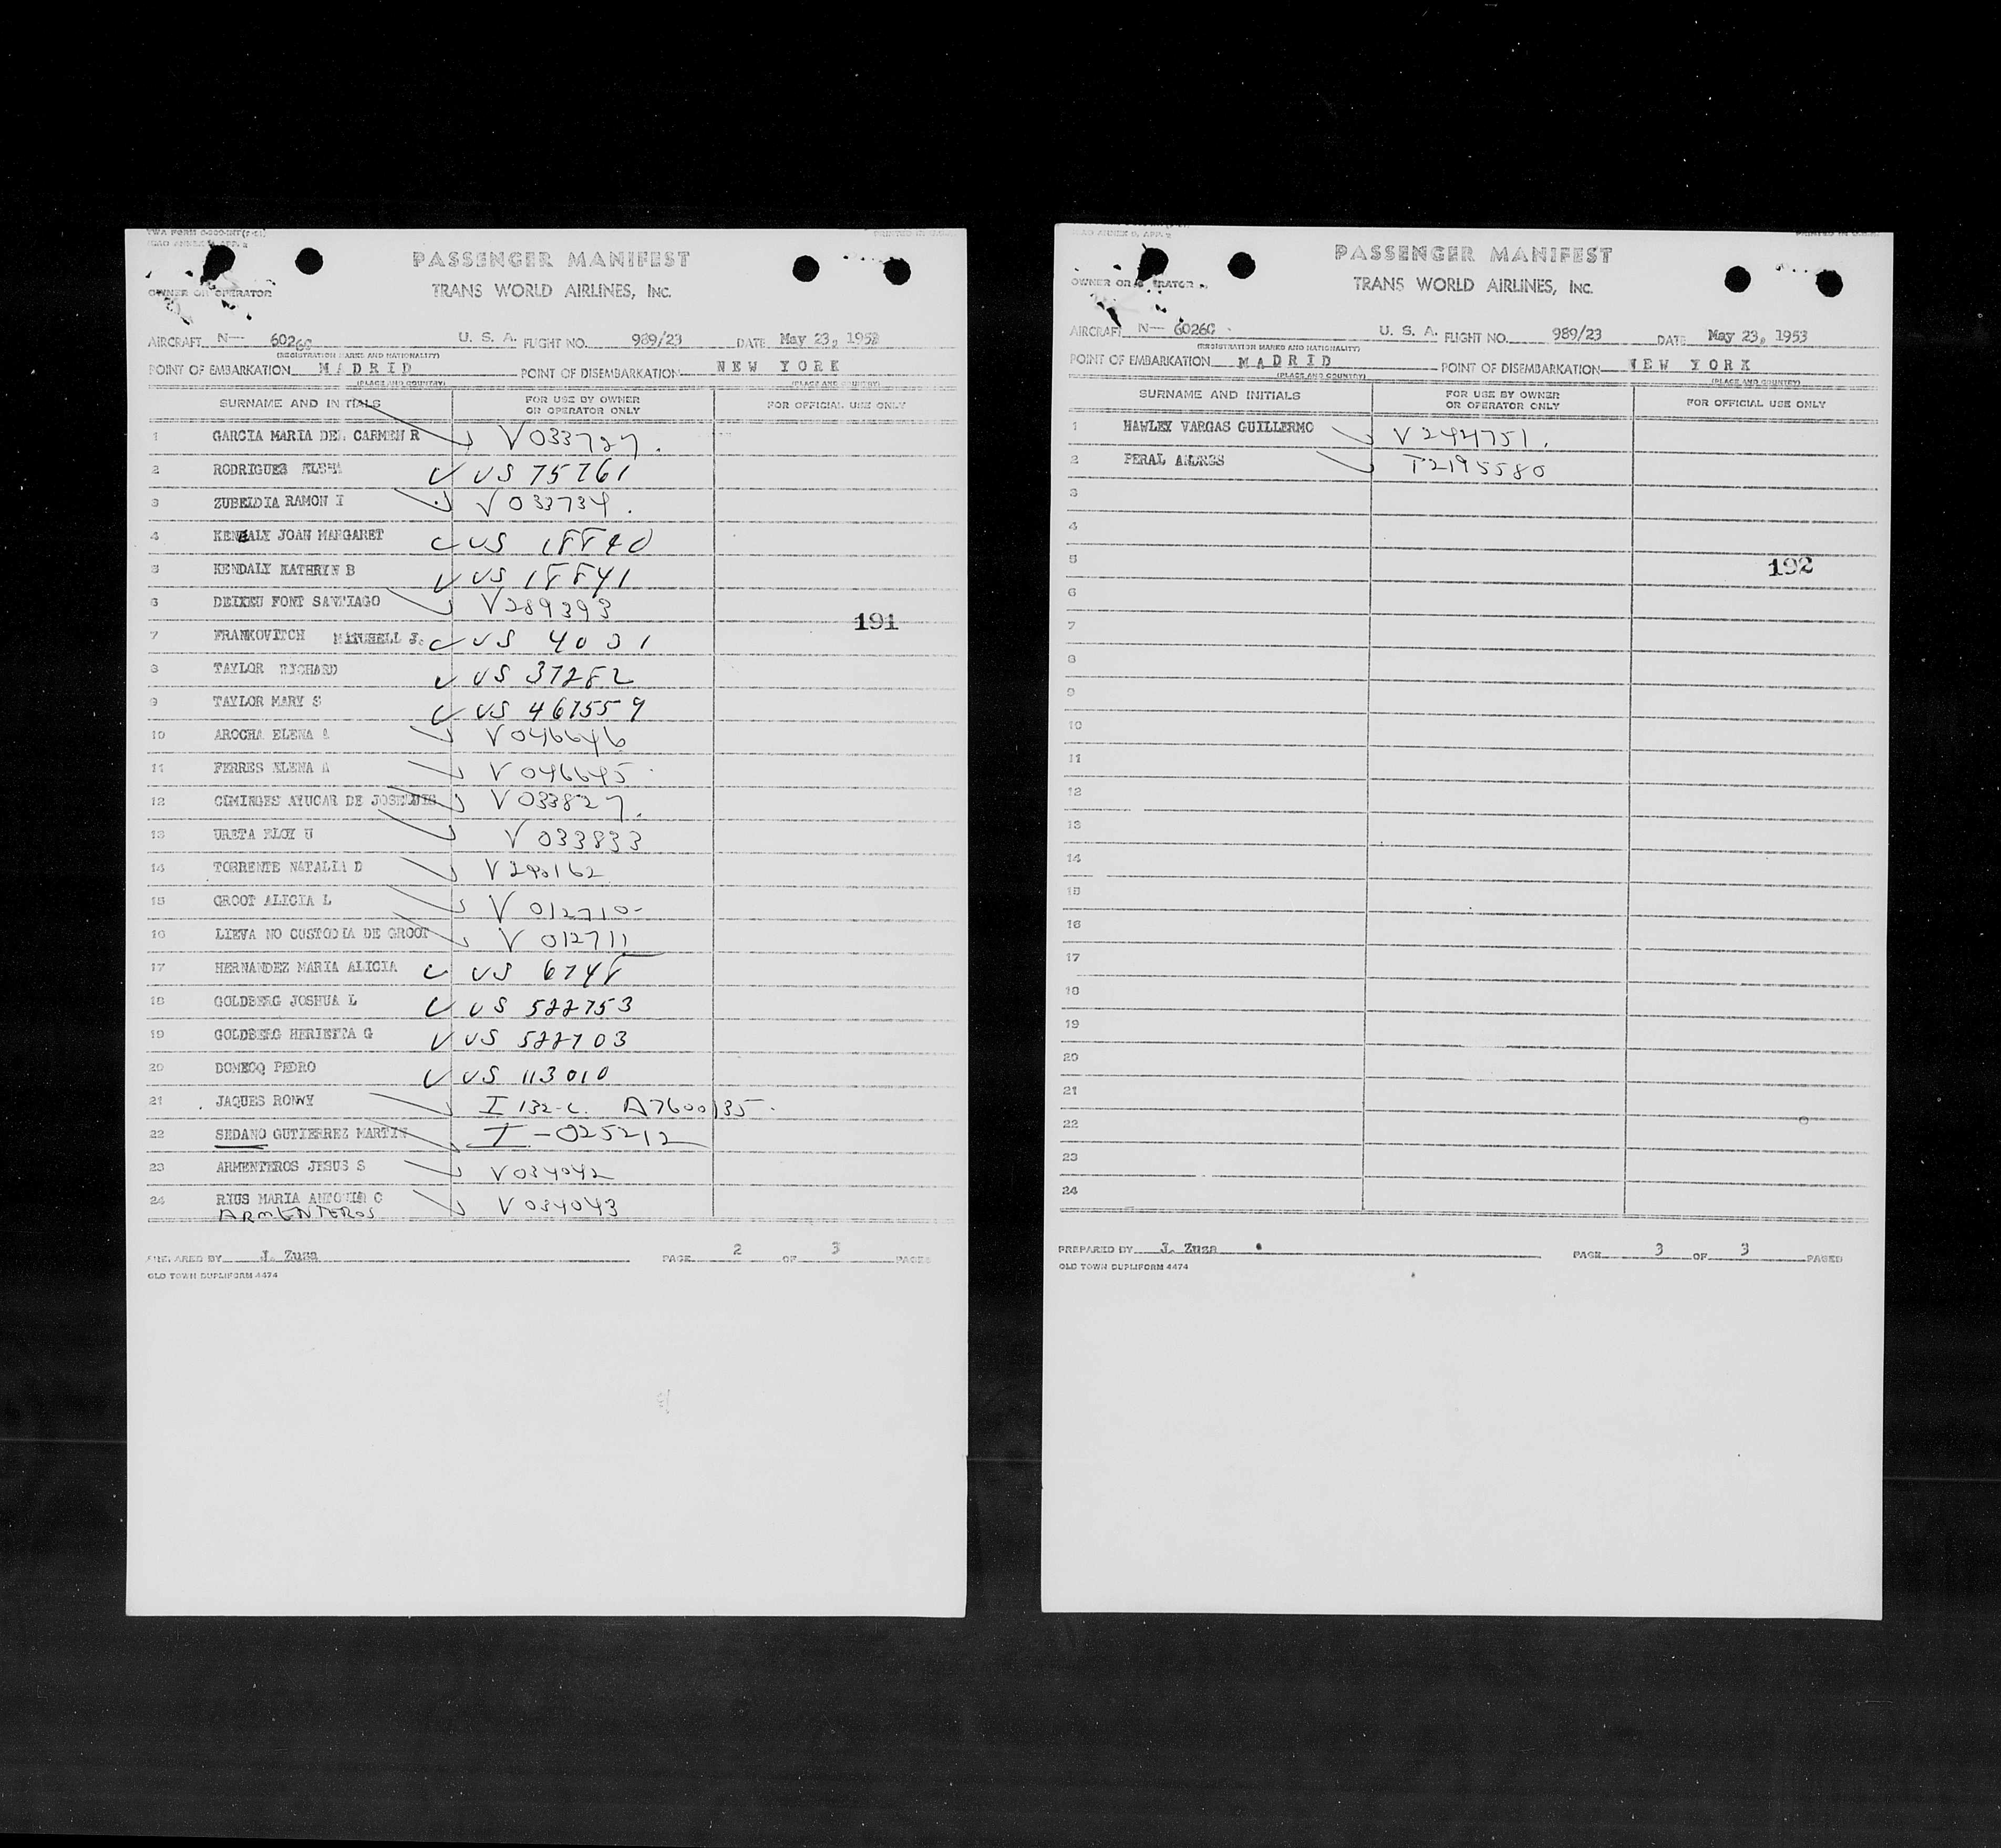 TWA FORM
ICAO ANNEX 9, APP. 2
PRINTED IN
PASSENGER MANIFEST
OWNER OR OPERATOR
TRANS WORLD AIRLINES, INC.
AIRCRAFT N— 6026C U. S. A. FLIGHT NO. 989/23 DATE May 23, 1953
(REGISTRATION MARKS AND NATIONALITY)
POINT OF EMBARKATION MADRID POINT OF DISEMBARKATION NEW YORK
(PLACE AND COUNTRY) (PLACE AND COUNTRY)
SURNAME AND INITIALS FOR USE BY OWNER OR OPERATOR ONLY FOR OFFICIAL USE ONLY
1 GARCIA MARIA DEL CARMEN R V033727.
2 RODRIGUES ELENA US 75761
3 ZUBELDIA RAMON I V033734.
4 KENDALY JOAN MARGARET US 18840
5 KENDALY KATHRYN B US 18841
6 DEIXEU FONT SANTIAGO V289393
191
7 FRANKOVITCH J. US 4031
8 TAYLOR RICHARD US 37282
9 TAYLOR MARY S US 467559
10 AROCHA ELENA A V046646
11 FERRES ELENA A V046645
12 AYUCAR DE JOSE LUIS V033827.
13 URETA ELOY U V033833
14 TORRENTE NATALIA D V290162
15 GROOT ALICIA L V012710-
16 LIEVANO CUSTODIA DE GROOT V012711
17 HERNANDEZ MARIA ALICIA US 6748
18 GOLDBERG JOSHUA L US 522753
19 GOLDBERG HERIETTA G US 522703
20 DOMECQ PEDRO US 113010
21 JAQUES RONNY I 132-C. A7600135.
22 SEDANO GUTIERREZ MARTIN I-025212
23 ARMENTEROS JESUS S V034042
24 RIUS MARIA ANTONIA C V034043
ARMENTEROS
PREPARED BY J. Zusa PAGE 2 OF 3 PAGES
OLD TOWN DUPLIFORM 4474
ICAO ANNEX 9, APP. 2
PRINTED IN U.S.A.
PASSENGER MANIFEST
OWNER OR OPERATOR
TRANS WORLD AIRLINES, INC.
AIRCRAFT N— 6026C U. S. A. FLIGHT NO. 989/23 DATE May 23, 1953
(REGISTRATION MARKS AND NATIONALITY)
POINT OF EMBARKATION MADRID POINT OF DISEMBARKATION NEW YORK
(PLACE AND COUNTRY) (PLACE AND COUNTRY)
SURNAME AND INITIALS FOR USE BY OWNER OR OPERATOR ONLY FOR OFFICIAL USE ONLY
1 HAWLEY VARGAS GUILLERMO V244751.
2 PERAL ANDRES T2195580
3
4
5
192
6
7
8
9
10
11
12
13
14
15
16
17
18
19
20
21
22
23
24
PREPARED BY J. Zusa PAGE 3 OF 3 PAGES
OLD TOWN DUPLIFORM 4474